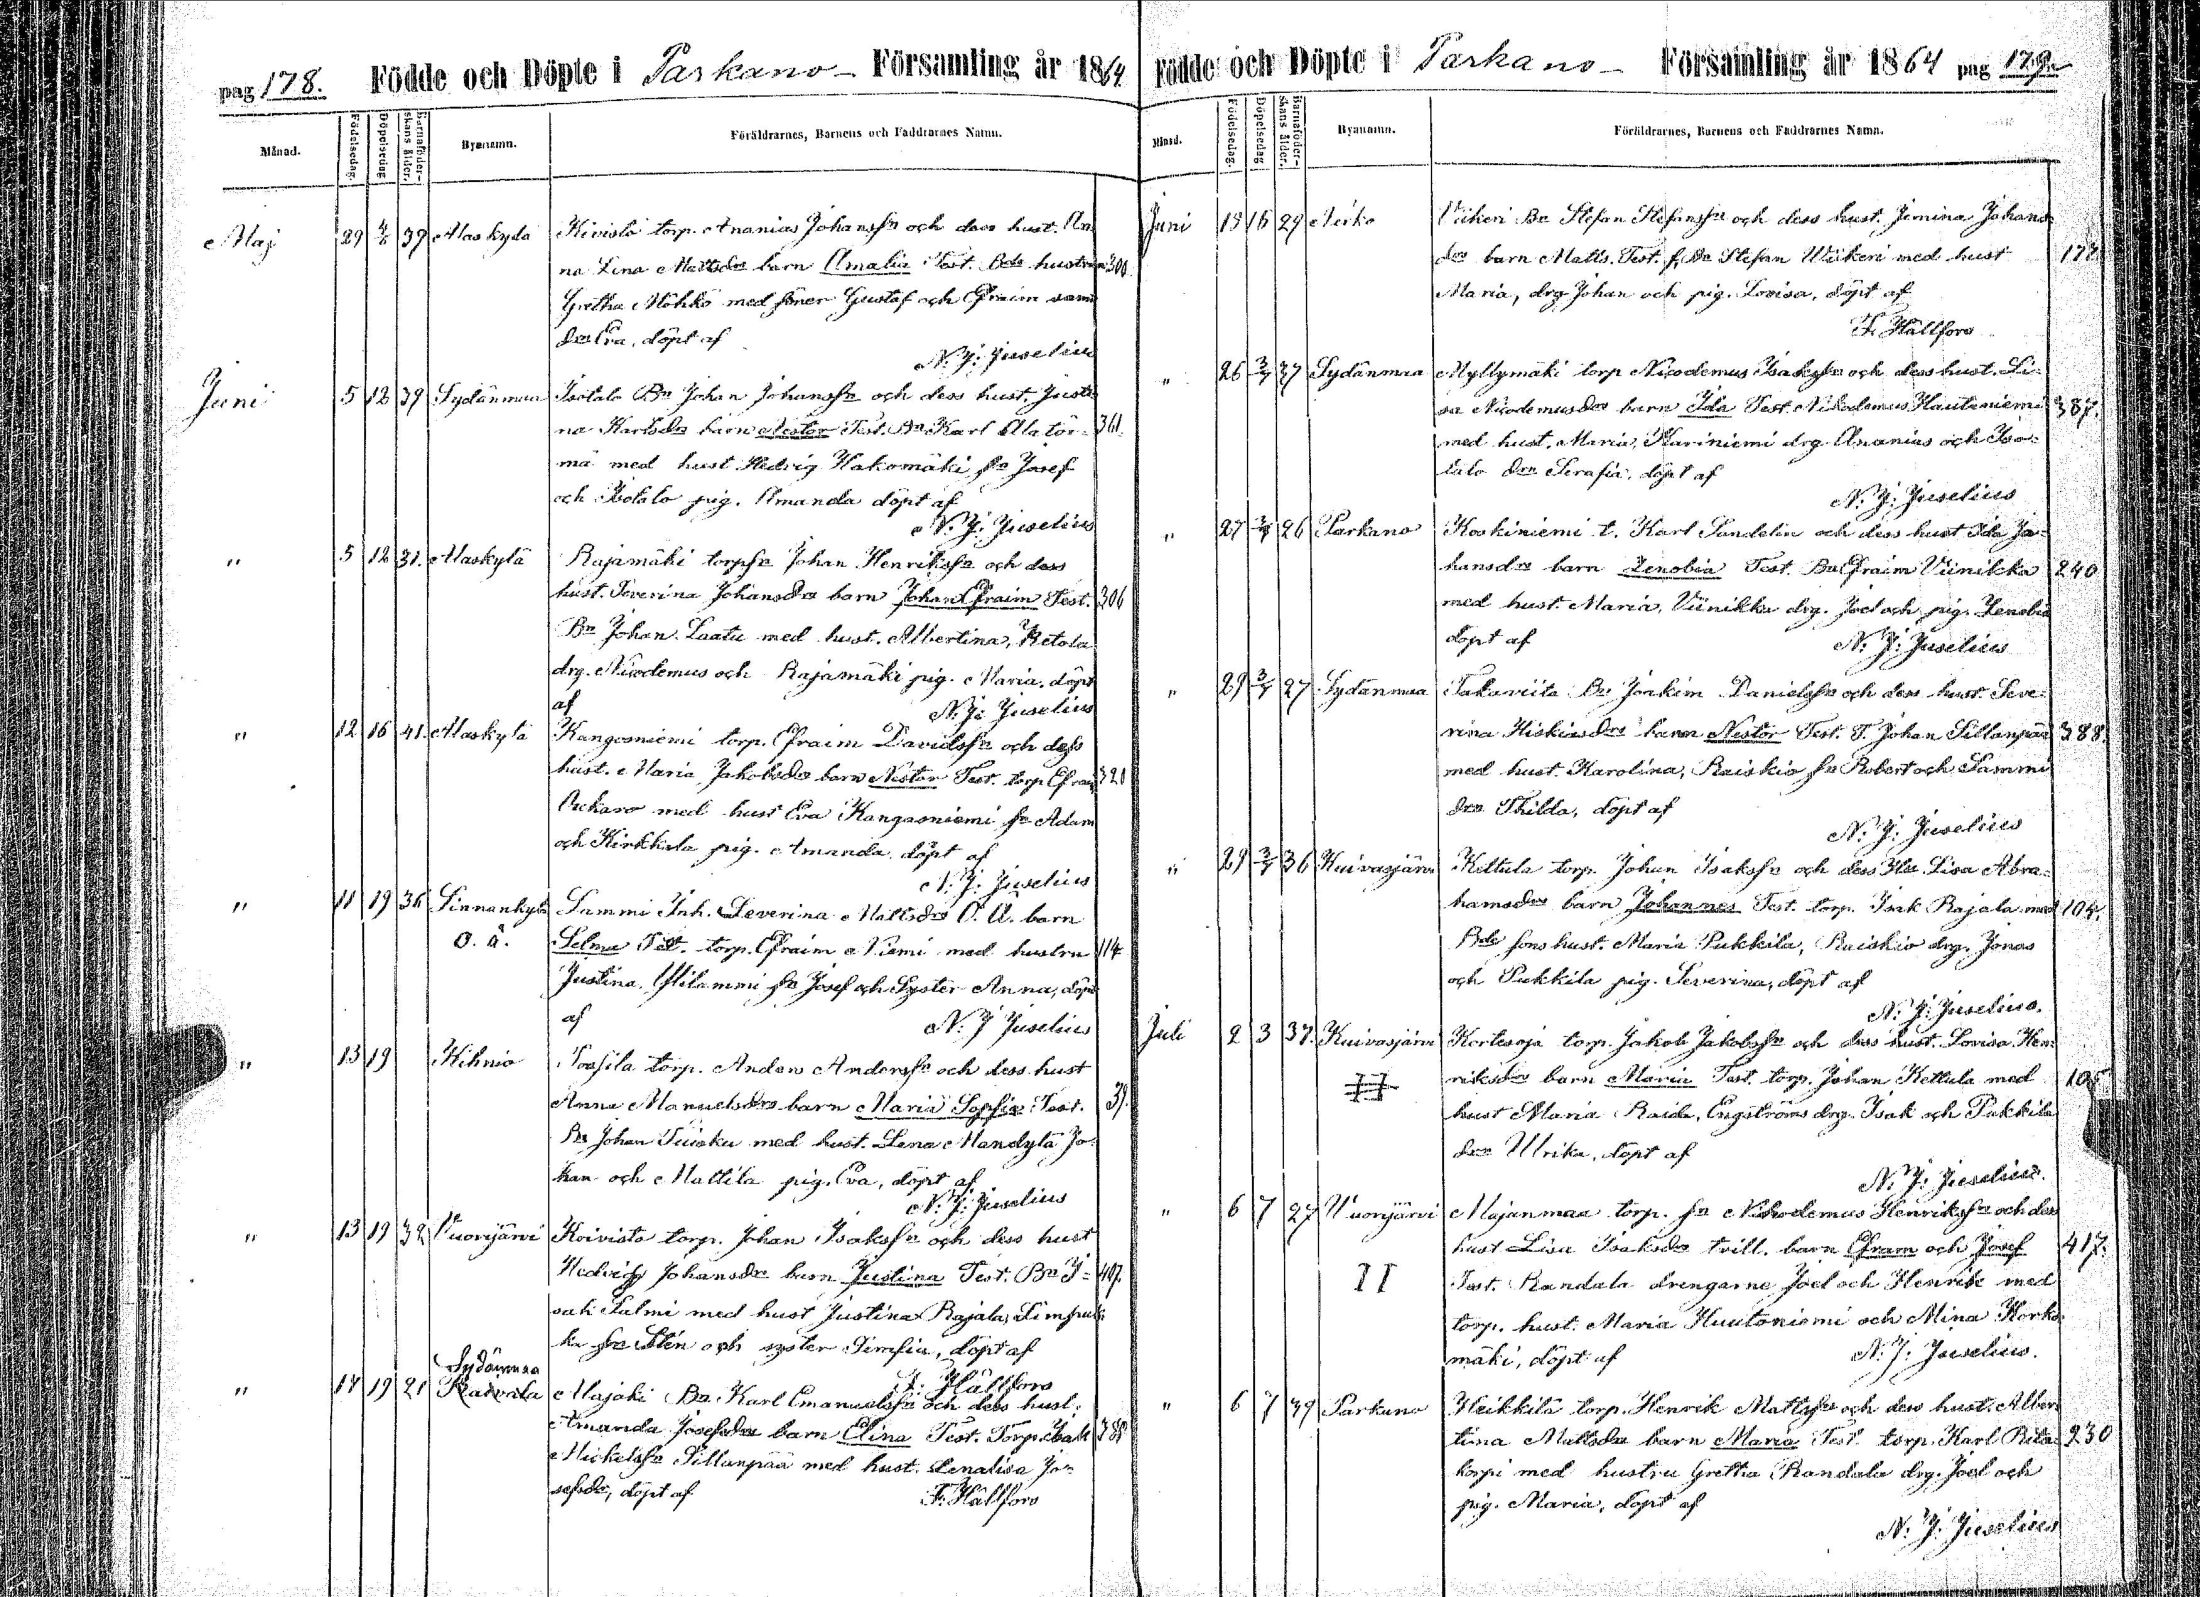 pag 178. Födde och Döpte i Parkano Församling år 1864
Månad. Födelsedag. Döpelsedag Barnaföderskans ålder. Bynamn. Föräldrarnes, Barnens och Faddrarnes Namn.
Maj 29 4/6 39 Alaskylä Kivistö torp. Ananias Johansſn och dess hust. An
na Lina Mattsdr barn Amalia Test. Bde hustrun 300
Gretha Möhkö med söner Gustaf och Efraim samt
drn Eva, döpt af
N. J: Juselius
Juni 5 12 39 Sydänmaa Isotalo Bn Johan Johansſn och dess hust. Justi
na Karlsdr barn Nestor Test. Bn Karl Alatör= 361.
mä med hust Hedvig Hakomäki sn Josef
och Isotalo pig. Amanda döpt af
N. J: Juselius
" 5 12 31. Alaskylä Rajamäki torpsn Johan Henriksſn och dess
hust. Severina Johansdr barn Johan Efraim Test. 306
Bn Johan Laatu med hust. Albertina, Ketola
drg. Nicodemus och Rajamäki pig. Maria. döpt
af N. J: Juselius
" 12 16 41. Alaskylä Kangasniemi torp. Efraim Davidsſn och dess
hust. Maria Jakobsdr barn Nestor Test. torp Efraim 321
med hust Eva Kangasniemi sn Adam
och Kirkkala pig. Amanda. döpt af
N: J: Juselius
" 11 19 36 Linnankylä Sammi Inh. Severina Mattsdr O. Ä. barn
O. ä. Selma Test. torp. Efraim Niemi med hustru 114
Justina. Ylilammi sn Josef och Syster Anna, döpt
af N: J Juselius
" 13 19 Kihniö torp. Anders Andersſn och dess hust
Anna Manuelsdr barn Maria Sofia Test. 39.
Bn Johan med hust. Lena Mandylä Jo=
han och Mattila pig. Eva, döpt af
N: J: Juselius
" 13 19 32 Vuorijärvi Koivisto torp. Johan Isaksſn och dess hust
Hedvig Johansdr barn Justina Test. Bn I= 407.
sak Salmi med hust Justina Rajala,
ka sn Sten och syster, döpt af
F. Hällfors
" 17 19 21 Sydänmaa
Raivala Majaki Bn. Karl Emanuelsſn och dess hust.
Amanda Josefsdr barn Elina Test. Torp. Isak 388
Mickelsſn Sillanpää med hust. Lenalisa Jo=
sefsdr, döpt af F. Hällfors
Födde och Döpte i Parkano Församling år 1864 pag 179.
Månad. Födelsedag. Döpelsedag Barnaföderskans ålder. Bynamn. Föräldrarnes, Barnens och Faddrarnes Namn.
Juni 15 16 29 Neiko Viikeri Bn Stefan Stefansſn och dess hust. Jemina Johans
drs barn Matts. Test. f. Bn Stefan Wiikeri med hust 177
Maria, drg Johan och pig. Lovisa, döpt af
F. Hällfors
" 26 3/7 37 Sydänmaa Myllymäki torp Nicodemus Isaksſn och dess hust. Li=
sa Nicodemusdr barn Ida Test. Nikodemus Hautaniemi 387.
med hust. Maria, Kariniemi drg Ananias och Iso=
talo drn Serafia, döpt af
N. J: Juselius
" 27 3/7 26 Parkano Koskiniemi t. Karl Sandelin och dess hust Ida Jo=
hansdr barn Zenobia Test. Bn Efraim Viinikka 240
med hust. Maria, Viinikka drg. Joel och pig. Zenobia
döpt af N: J: Juselius
" 29 3/7 27 Sydänmaa Takaviita Bn Joakim Danielsſn och dess hust. Seve=
rina Hiskiasdr barn Nestor Test. T. Johan Sillanpää 388.
med hust. Karolina, Raiskio sn Robert och Sammi
drn Thilda, döpt af
N: J: Juselius
" 29 3/7 36 Kuivasjärvi Kettula torp. Johan Isaksſn och dess Hu. Lisa Abra=
hamsdr barn Johannes Test. torp. Isak Rajala med 104.
Bde sons hust. Maria Pukkila, Raiskio drg. Jonas
och Pukkila pig. Severina, döpt af
N. J: Juselius.
Juli 2 3 37. Kuivasjärvi Kortesoja torp. Jakob Jakobsſn och dess hust. Lovisa Hen=
riksdr barn Maria Test. torp. Johan Kettula med 105
hust Maria Raida, Engströms drg. Isak och Pukkila
drn Ulrika, döpt af
N. J: Juselius.
" 6 7 27 Vuorijärvi Majanmaa torp. sn Nikodemus Henriksſn och dess
hust Lisa Isaksdr tvill. barn Efram och Josef 417.
II Test. Randala drengarne Joel och Henrik med
torp. hust. Maria Huutoniemi och Mina Korko=
mäki, döpt af N. J: Juselius.
" 6 7 39 Parkano Heikkilä torp. Henrik Mattsſn och dess hust. Alber
tina Mattsdr barn Maria Test. torp. Karl Rita= 230
korpi med hustru Gretha Randala drg. Joel och
pig. Maria, döpt af
N: J: Juselius